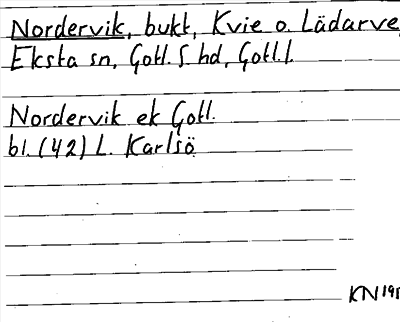 Nordervik, bukt, Kvie o. Lädarve
Eksta sn, Gotl. S hd, Gotl. l.
Nordervik ek Gotl.
bl. (42) L. Karlsö
KN 195